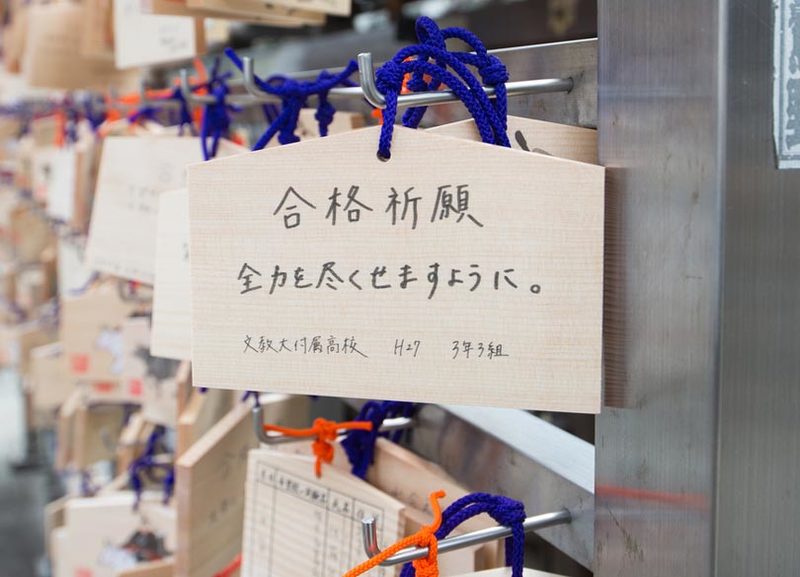 合格祈願
全力を尽くせますように。
文教大付属高校 H27 3年3組